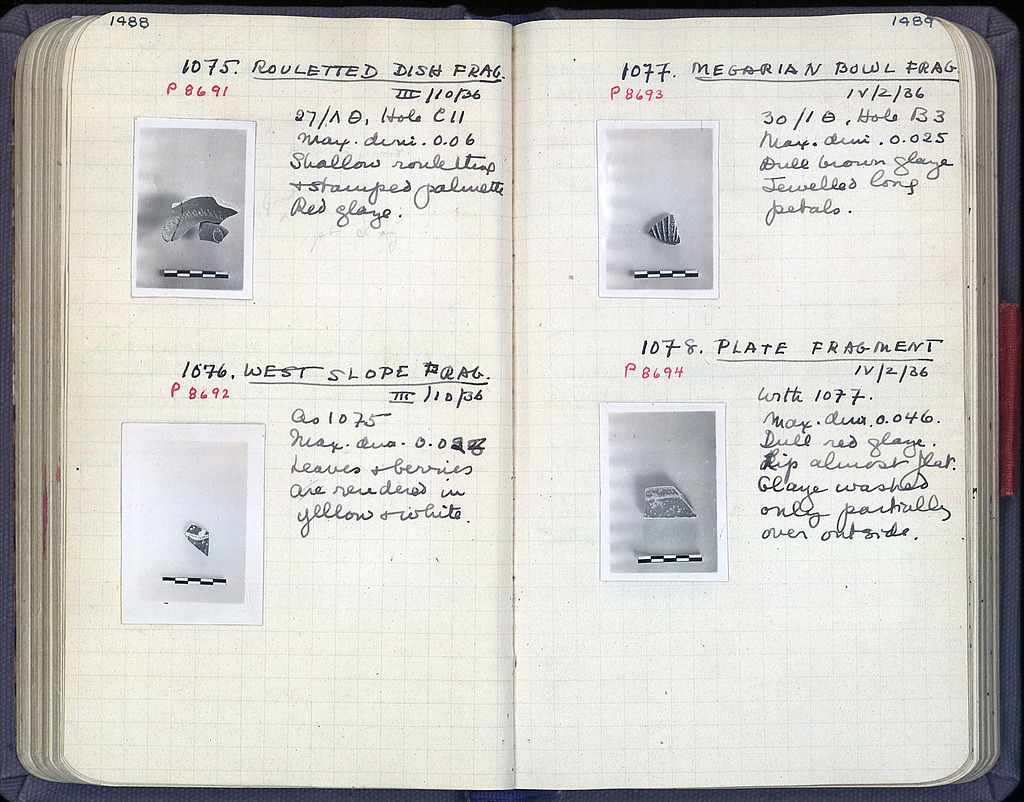 1488
1075. ROULETTED DISH FRAG.
P 8691
III/10/36
27/ΛΘ, Hole C11
Max. dim. 0.06
Shallow rouletting
+ stamped palmette
Red glaze.
1076. WEST SLOPE FRAG.
P 8692
III/10/36
As 1075
Max. dim. 0.0
Leaves + berries
are rendered in
yellow + white.
1489
1077. MEGARIAN BOWL FRAG
P 8693
IV/2/36
30/ΙΘ, Hole B3
Max. dim. 0.025
Dull brown glaze
Jewelled long
petals.
1078. PLATE FRAGMENT
P 8694
IV/2/36
With 1077.
Max. dim. 0.046.
Dull red glaze.
Lip almost flat.
Glaze washed
only partially
over outside.